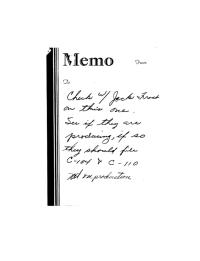 Memo
From
To
Check w/ Jack Frost
on this one.
See if they are
producing, if so
they should file
C-104 & C-110
on production